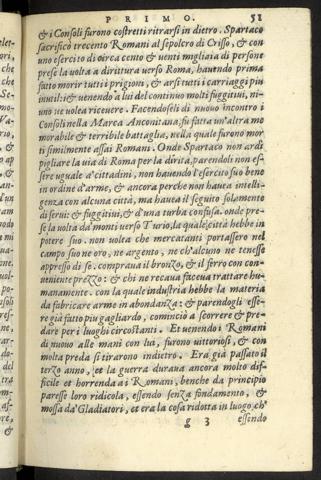 PRIMO. 51
& i Consoli furono costretti ritrarsi in dietro. Spartaco
sacrificò trecento Romani al sepolcro di Crisso, & con
uno esercito di circa cento & uenti migliaia di persone
prese la uolta a dirittura uerso Roma, hauendo prima
fatto morir tutti i prigioni, & arsi tutti i carriaggi piu
inutili: & uenendo a lui del continuo molti fuggitiui, niu-
no ne uolea riceuere. Facendoseli di nuouo incontro i
Consoli nella Marca Anconitana, fu fatta un'altra me
morabile & terribile battaglia, nella quale furono mor
ti similmente assai Romani. Onde Spartaco non ardi
pigliare la uia di Roma per la diritta, parendoli non es-
sere uguale a' cittadini, non hauendo l'esercito suo bene
in ordine d'arme, & ancora perche non hauea intelli-
genza con alcuna città, ma hauea il seguito solamente
di serui: & fuggitiui, & d'una turba confusa. onde pre-
se la uolta da monti uerso Turio, la quale città hebbe in
potere suo. non uolea che mercatanti portassero nel
campo suo ne oro, ne argento, ne ch'alcuno ne tenesse
appresso di se. compraua il bronzo, & il ferro con con-
ueniente prezzo: & chi ne recaua faceua trattare hu-
manamente. con la quale industria hebbe la materia
da fabricare arme in abondanza: & parendogli esse-
re già fatto piu gagliardo, cominciò a scorrere & pre-
dare per i luoghi circostanti. Et uenendo i Romani
di nuouo alle mani con lui, furono uittoriosi, & con
molta preda si tirarono indietro. Era già passato il
terzo anno, et la guerra duraua ancora molto dif-
ficile et horrenda a i Romani, benche da principio
paresse loro ridicola, essendo senza fondamento, &
mossa da' Gladiatori, et era la cosa ridotta in luogo ch'
g 3 essendo